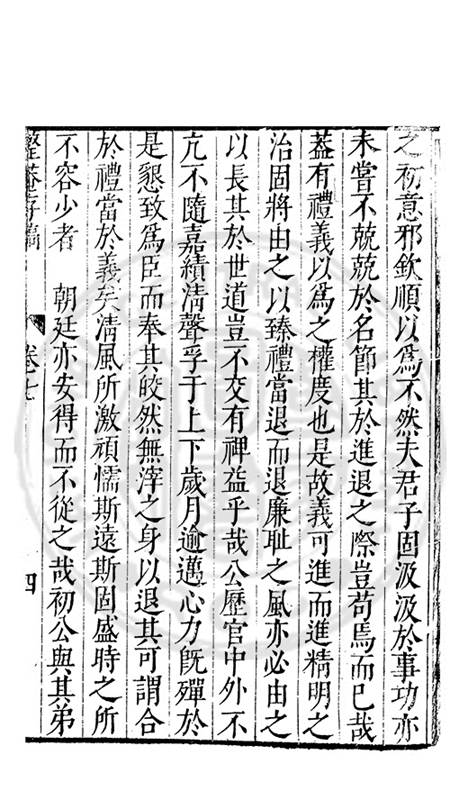 之初意邪欽順以爲不然夫君子固汲汲於事功亦
未嘗不兢兢於名節其於進退之際豈苟焉而已哉
葢有禮義以爲之權度也是故義可進而進精明之
治固將由之以臻禮當退而退廉耻之風亦必由之
以長其於世道豈不交有裨益乎哉公歷官中外不
亢不隨嘉績淸聲孚于上下歲月逾邁心力旣殫於
是懇致爲臣而奉其皎然無滓之身以退其可謂合
於禮當於義矣淸風所激頑懦斯遠斯固盛時之所
不容少者 朝廷亦安得而不從之哉初公與其弟
整菴存稿 卷七 四